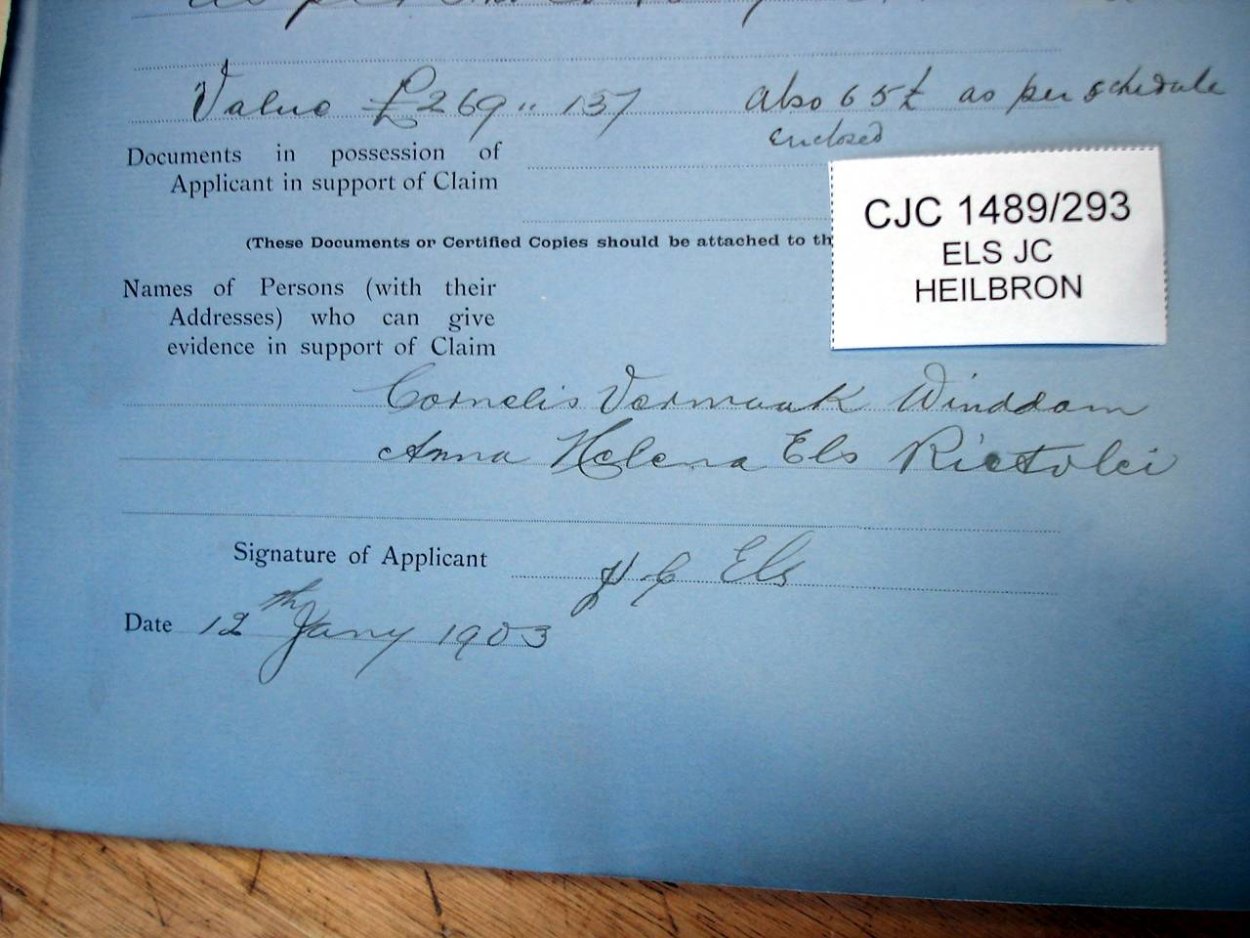 as per
Value £269 " 137 also 65£ as per schedule
enclosed
Documents in possession of
Applicant in support of Claim
(These Documents or Certified Copies should be attached to th
CJC 1489/293
ELS JC
HEILBRON
Names of Persons (with their
Addresses) who can give
evidence in support of Claim
Cornelis Vermaak Winddam
Anna Helena Els Rietvlei
Signature of Applicant J C Els
Date 12th Jany 1903